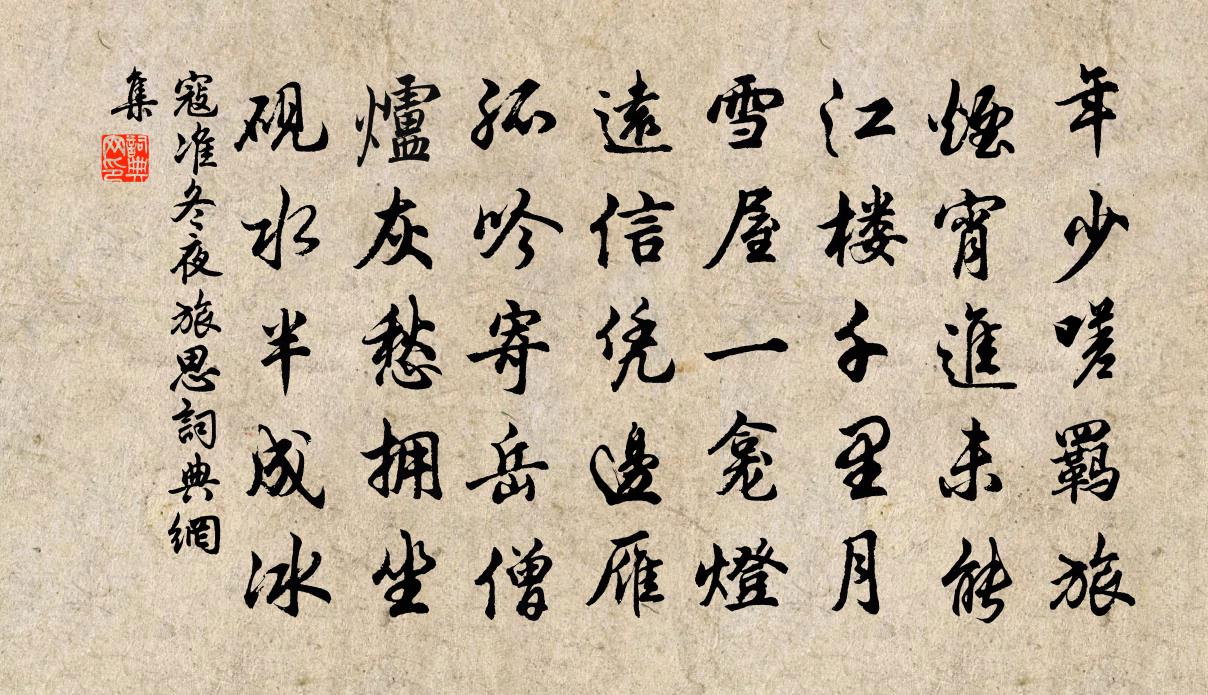 年少嗟羈旅
煙宵進未能
江楼千里月
雪屋一龛燈
遠信凭邊雁
孤吟寄岳僧
爐灰愁拥坐
硯水半成冰
寇准冬夜旅思詞典網
集
詞典
网印